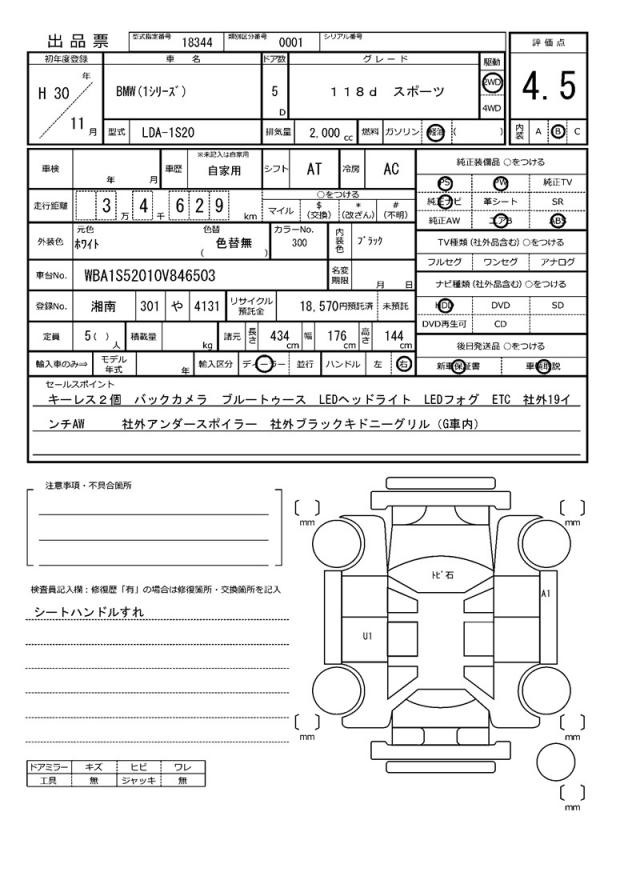 出品票 型式指定番号 18344 類別区分番号 0001 シリアル番号
初年度登録 車名 ドア数 グレード 駆動 評価点
H 30 年 11 月 BMW(1シリーズ) 5 D 118d スポーツ 2WD 4WD 4.5
型式 LDA-1S20 排気量 2,000 cc 燃料 ガソリン 軽油 ( ) 内装 A B C
車検 年 月 車歴 ※未記入は自家用 自家用 シフト AT 冷房 AC
走行距離 3 万 4 千 629 km ○をつける
マイル $(交換) *(改ざん) #(不明)
外装色 元色 ホワイト 色替 ( 色替無 ) カラーNo. 300 内装色 ブラック
車台No. WBA1S52010V846503 名変期限 月 日
登録No. 湘南 301 や 4131 リサイクル預託金 18,570円預託済 未預託
定員 5( ) 人 積載量 kg 諸元 長さ 434 cm 幅 176 cm 高さ 144 cm
輸入車のみ⇒ モデル年式 年 輸入区分 ディーラー 並行 ハンドル 左 右
純正装備品 ○をつける
PS PW 純正TV
純正ナビ 革シート SR
純正AW エアB ABS
TV種類(社外品含む)○をつける
フルセグ ワンセグ アナログ
ナビ種類(社外品含む)○をつける
HDD DVD SD
DVD再生可 CD
後日発送品 ○をつける
新車保証書 車輌取説
セールスポイント
キーレス2個 バックカメラ ブルートゥース LEDヘッドライト LEDフォグ ETC 社外19イ
ンチAW 社外アンダースポイラー 社外ブラックキドニーグリル(G車内)
注意事項・不具合箇所
検査員記入欄:修復歴「有」の場合は修復箇所・交換箇所を記入
シートハンドルすれ
ドアミラー キズ ヒビ ワレ
工具 無 ジャッキ 無
mm
mm
トビ石
A1
U1
mm
mm
mm